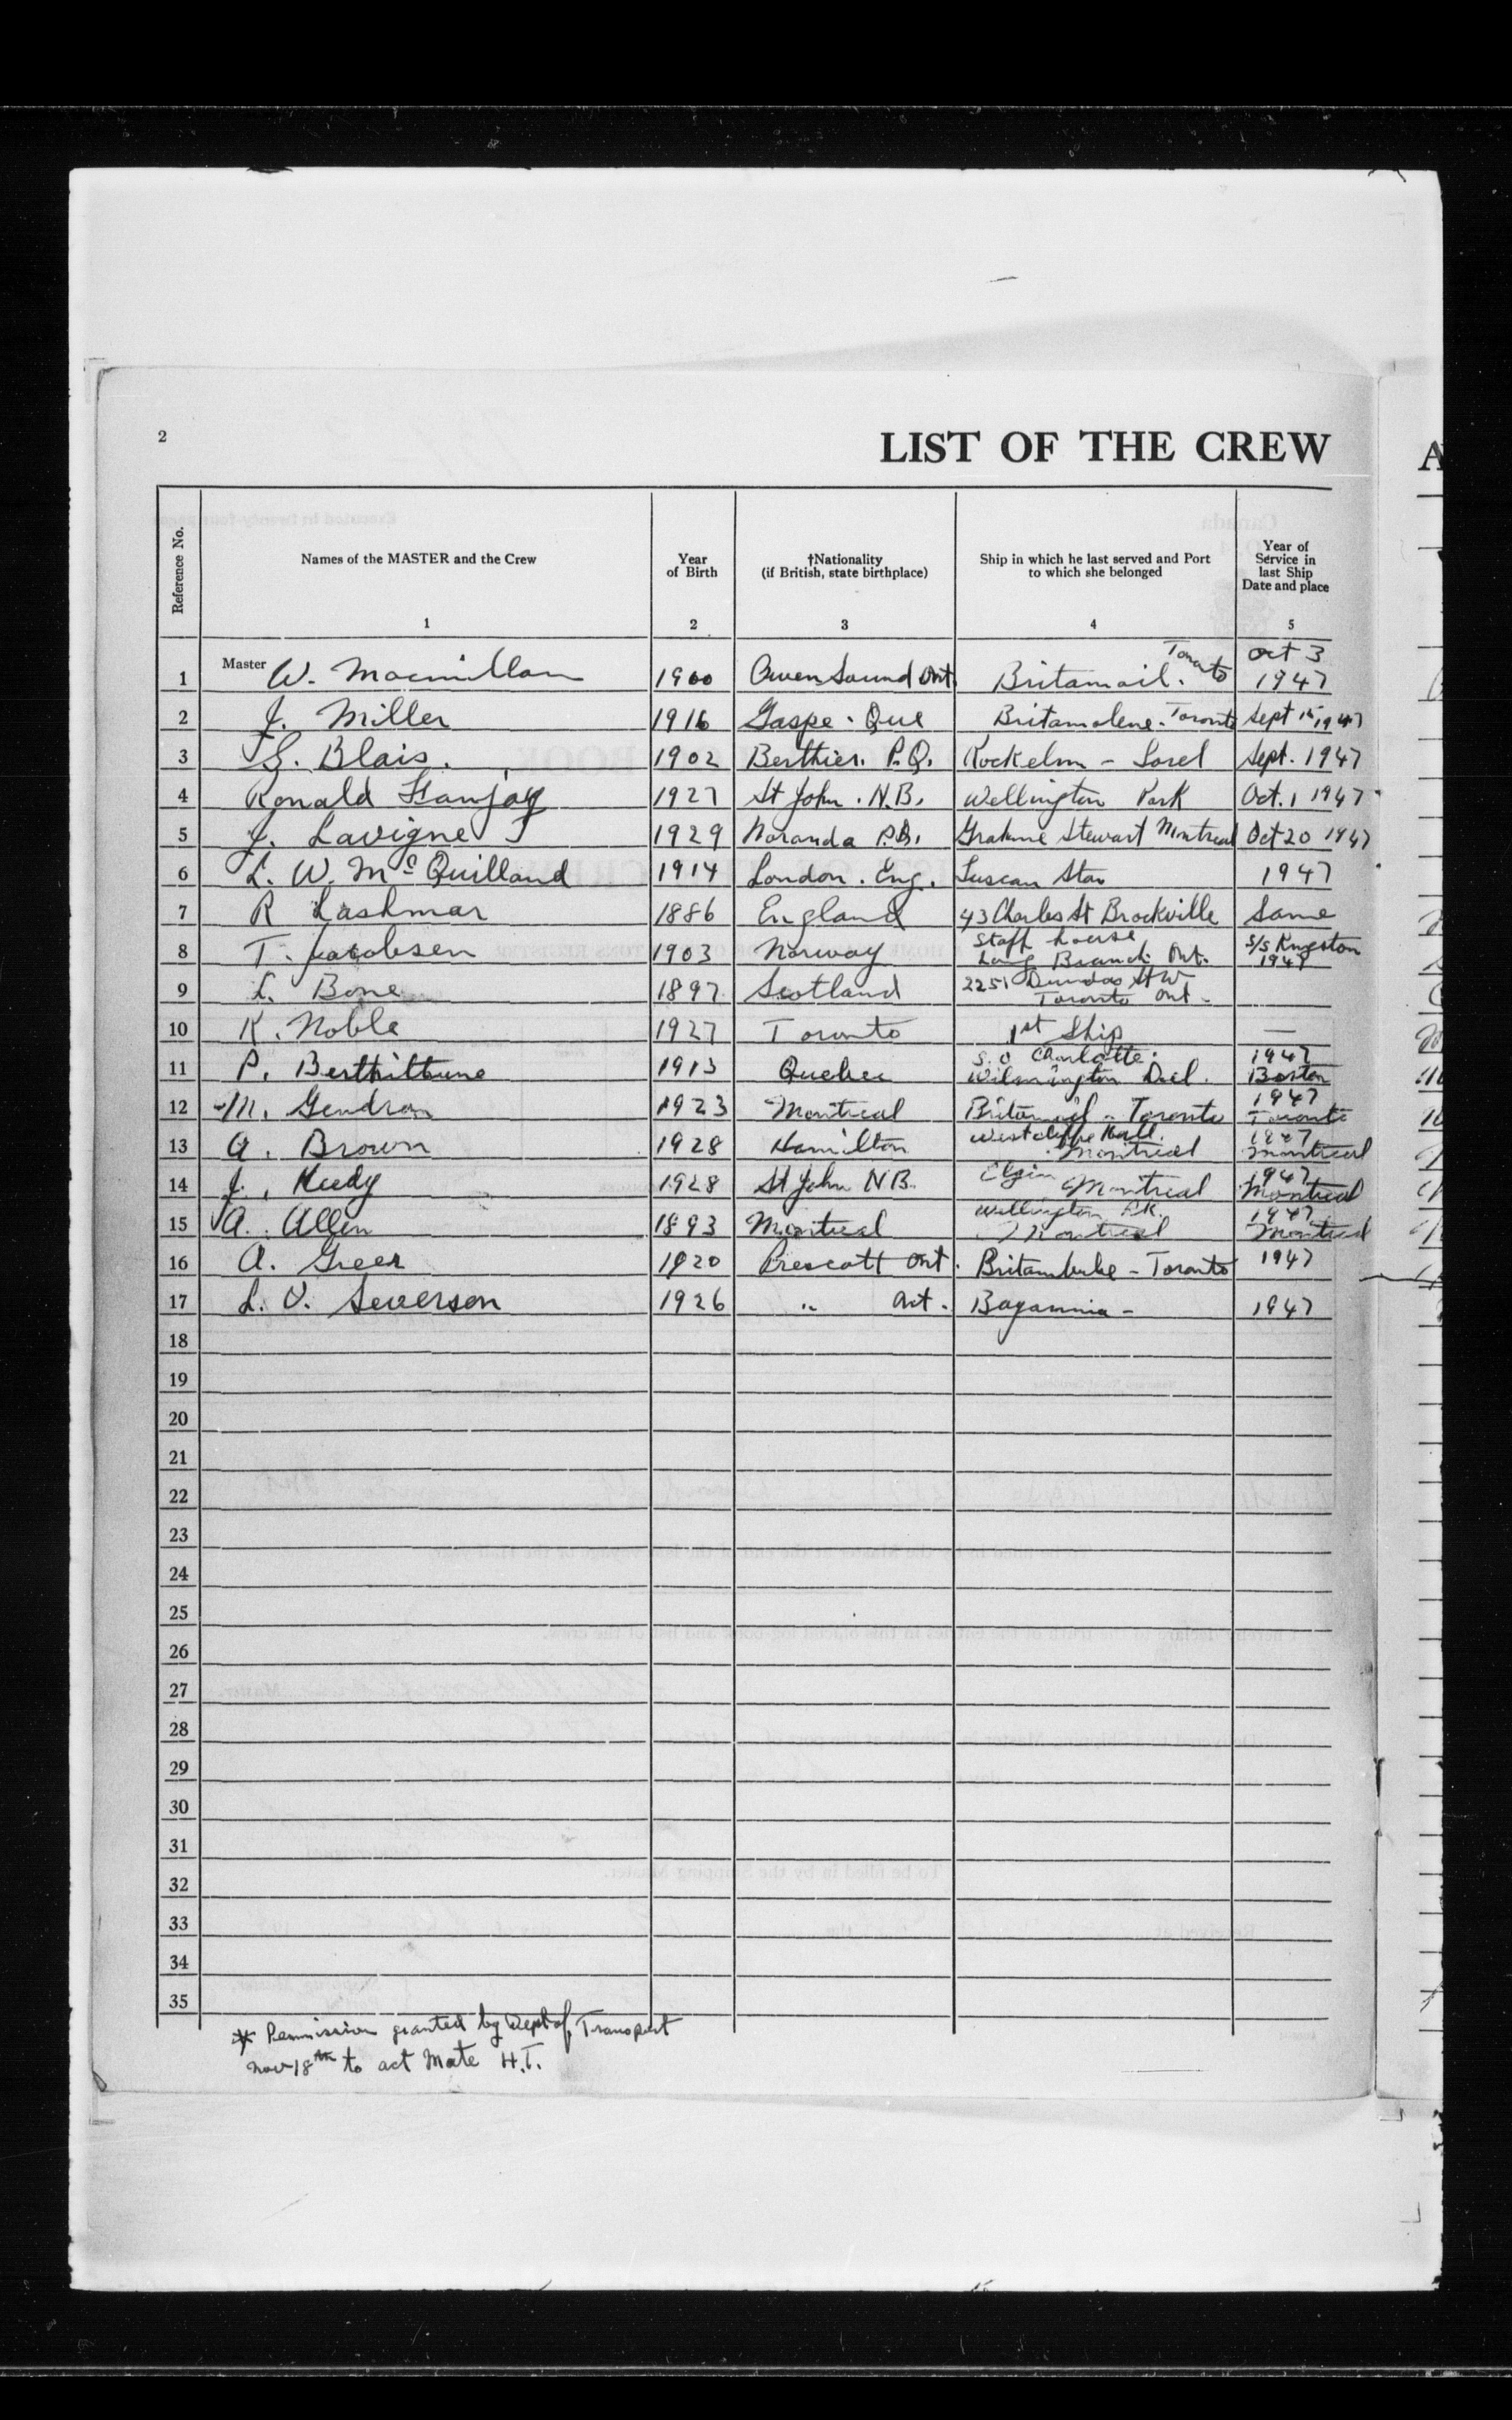 2
LIST OF THE CREW
Reference No.
Names of the MASTER and the Crew
Year of Birth
†Nationality (if British, state birthplace)
Ship in which he last served and Port to which she belonged
Year of Service in last Ship Date and place
1 2 3 4 5
1 Master W. Macmillan 1900 Owen Sound Ont. Britamoil. Toronto Oct 3 1947
2 J. Miller 1916 Gaspe. Que Britamolene. Toronto Sept 15 1947
3 G. Blais. 1902 Berthier. P.Q. Rockelm - Sorel Sept. 1947
4 Ronald 1927 St John. N.B. Wellington Park Oct. 1 1947
5 J. Lavigne 1929 Noranda P.Q. Grahme Stewart Montreal Oct 20 1947
6 L. W. McQuilland 1914 London. Eng. Tuscan Star 1947
7 R Lashmar 1886 England 43 Charles St Brockville Same
8 T. Jacobsen 1903 Norway Staff house Long Branch Ont. S/S Kingston 1947
9 L. Bone 1897 Scotland 2251 Dundas St W Toronto Ont -
10 K. Noble 1927 Toronto 1st Ship —
11 P. 1913 Quebec Charlotte. Wilmington Del. 1947 Boston
12 M. Gendron 1923 Montreal Britamoil - Toronto 1947 Toronto
13 A. Brown 1928 Hamilton Westcliffe Hall. Montreal 1947 Montreal
14 J. 1928 St John NB. Elgin Montreal 1947 Montreal
15 A. Allen 1893 Montreal Wellington PK. Montreal 1947 Montreal
16 A. Greer 1920 Prescott Ont. Toronto 1947
17 L. O. Severson 1926 " Ont. 1947
18
19
20
21
22
23
24
25
26
27
28
29
30
31
32
33
34
35
* Permission granted by Dept of Transport
Nov 18th to act Mate H.T.